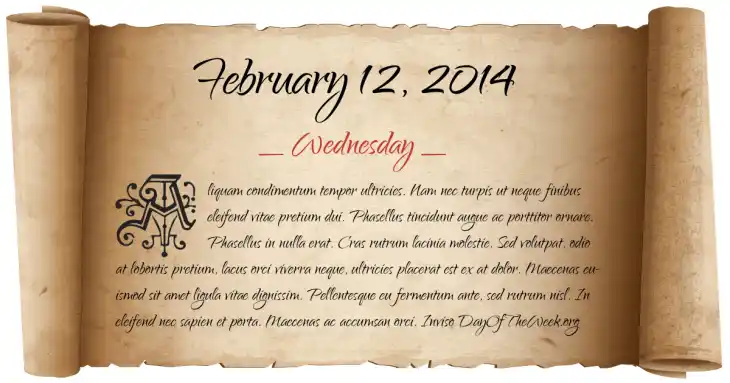 February 12, 2014
_ Wednesday _
Aliquam condimentum tempor ultricies. Nam nec turpis ut neque finibus
eleifend vitae pretium dui. Phasellus tincidunt augue ac porttitor ornare.
Phasellus in nulla erat. Cras rutrum lacinia molestie. Sed volutpat, odio
at lobortis pretium, lacus orci viverra neque, ultricies placerat est ex at dolor. Maecenas eu-
ismod sit amet ligula vitae dignissim. Pellentesque eu fermentum ante, sed rutrum nisl. In
eleifend nec sapien et porta. Maecenas ac accumsan orci. Inviso DayOfTheWeek.org